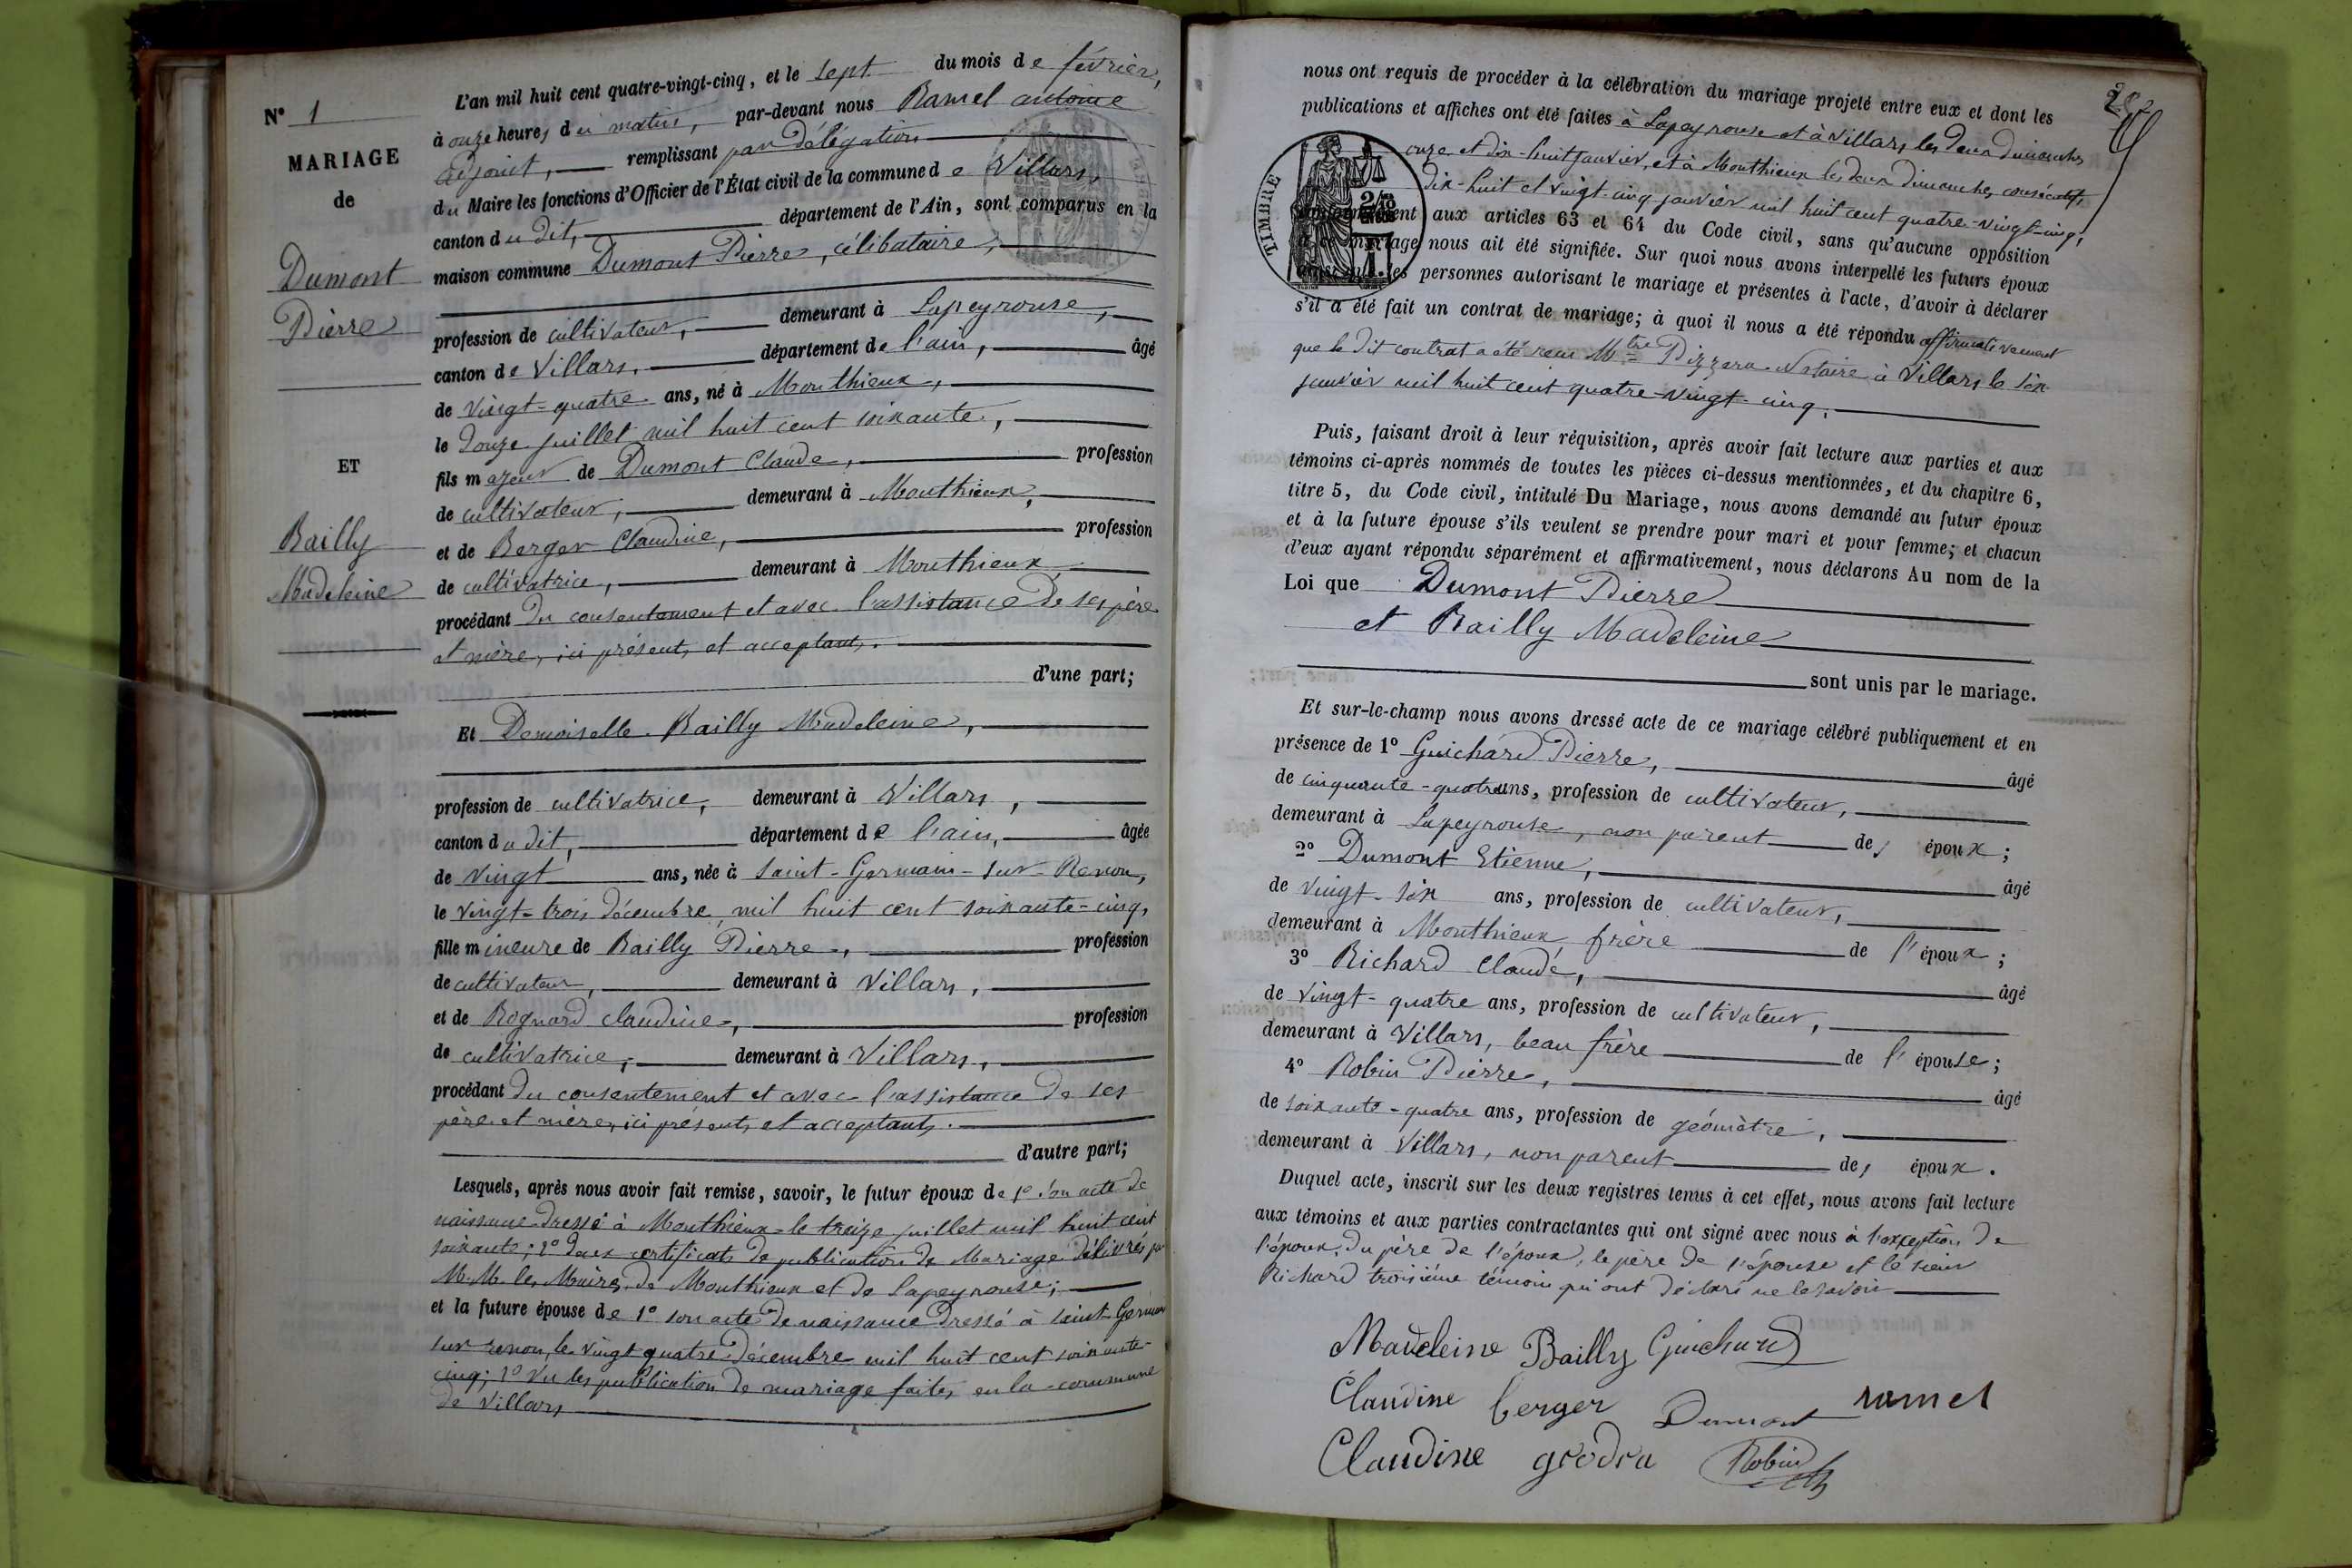 N° 1
MARIAGE
de
Dumont
Pierre
ET
Bailly
Madeleine
L'an mil huit cent quatre-vingt-cinq, et le sept du mois de février,
à onze heures du matin, par-devant nous Ramel antoine
adjoint, remplissant par délégation
du Maire les fonctions d'Officier de l'État civil de la commune de Villars,
canton du dit, département de l'Ain, sont comparus en la
maison commune Dumont Pierre, célibataire,
profession de cultivateur, demeurant à Lapeyrouse,
canton de Villars, département de l'ain, âgé
de vingt-quatre ans, né à Monthieux,
le douze juillet mil huit cent soixante,
fils majeur de Dumont Claude, profession
de cultivateur, demeurant à Monthieux,
et de Berger Claudine, profession
de cultivatrice, demeurant à Monthieux,
procédant du consentement et avec l'assistance de ses père
et mère, ici présents et acceptants.
d'une part;
Et Demoiselle Bailly Madeleine,
profession de cultivatrice, demeurant à Villars,
canton du dit, département de l'ain, âgée
de vingt ans, née à Saint-Germain-sur-Renon,
le vingt-trois décembre mil huit cent soixante-cinq,
fille mineure de Bailly Pierre, profession
de cultivateur, demeurant à Villars,
et de Rognard claudine, profession
de cultivatrice, demeurant à Villars,
procédant du consentement et avec l'assistance de ses
père et mère, ici présents et acceptants.
d'autre part;
Lesquels, après nous avoir fait remise, savoir, le futur époux de 1° son acte de
naissance dressé à Monthieux le treize juillet mil huit cent
soixante; 2° deux certificats de publication de Mariage délivrés par
M.M. les Maires de Monthieux et de Lapeyrouse;
et la future épouse de 1° son acte de naissance dressé à saint Germain
sur renon, le vingt quatre décembre mil huit cent soixante-
cinq; 2° Vu les publication de mariage faites en la commune
de Villars
282
nous ont requis de procéder à la célébration du mariage projeté entre eux et dont les
publications et affiches ont été faites à Lapeyrouse et à Villars, les deux dimanches
onze et dix-huit janvier, et à Monthieux les deux dimanches consécutifs
dix-huit et vingt-cinq janvier mil huit cent quatre-vingt-cinq,
TIMBRE
conformément aux articles 63 et 64 du Code civil, sans qu'aucune opposition
à ce mariage nous ait été signifiée. Sur quoi nous avons interpellé les futurs époux
ainsi que les personnes autorisant le mariage et présentes à l'acte, d'avoir à déclarer
s'il a été fait un contrat de mariage; à quoi il nous a été répondu affirmativement
que le dit contrat a été reçu Mtre Pizzera Notaire à Villars le six
janvier mil huit cent quatre-vingt-cinq.
Puis, faisant droit à leur réquisition, après avoir fait lecture aux parties et aux
témoins ci-après nommés de toutes les pièces ci-dessus mentionnées, et du chapitre 6,
titre 5, du Code civil, intitulé Du Mariage, nous avons demandé au futur époux
et à la future épouse s'ils veulent se prendre pour mari et pour femme; et chacun
d'eux ayant répondu séparément et affirmativement, nous déclarons Au nom de la
Loi que Dumont Pierre
et Bailly Madeleine
sont unis par le mariage.
Et sur-le-champ nous avons dressé acte de ce mariage célébré publiquement et en
présence de 1° Guichard Pierre, âgé
de cinquante-quatre ans, profession de cultivateur,
demeurant à Lapeyrouse, non parent des époux;
2° Dumont Etienne, âgé
de vingt-six ans, profession de cultivateur,
demeurant à Monthieux, frère de l'époux;
3° Richard Claude, âgé
de vingt-quatre ans, profession de cultivateur,
demeurant à Villars, beau frère de l'épouse;
4° Robin Pierre, âgé
de soixante-quatre ans, profession de géomètre,
demeurant à Villars, non parent des époux.
Duquel acte, inscrit sur les deux registres tenus à cet effet, nous avons fait lecture
aux témoins et aux parties contractantes qui ont signé avec nous à l'exception de
l'époux, du père de l'époux, le père de l'épouse et le sieur
Richard troisième témoin qui ont déclaré ne le savoir
Madeleine Bailly Guichard
Claudine berger Dumont ramel
Claudine Robin